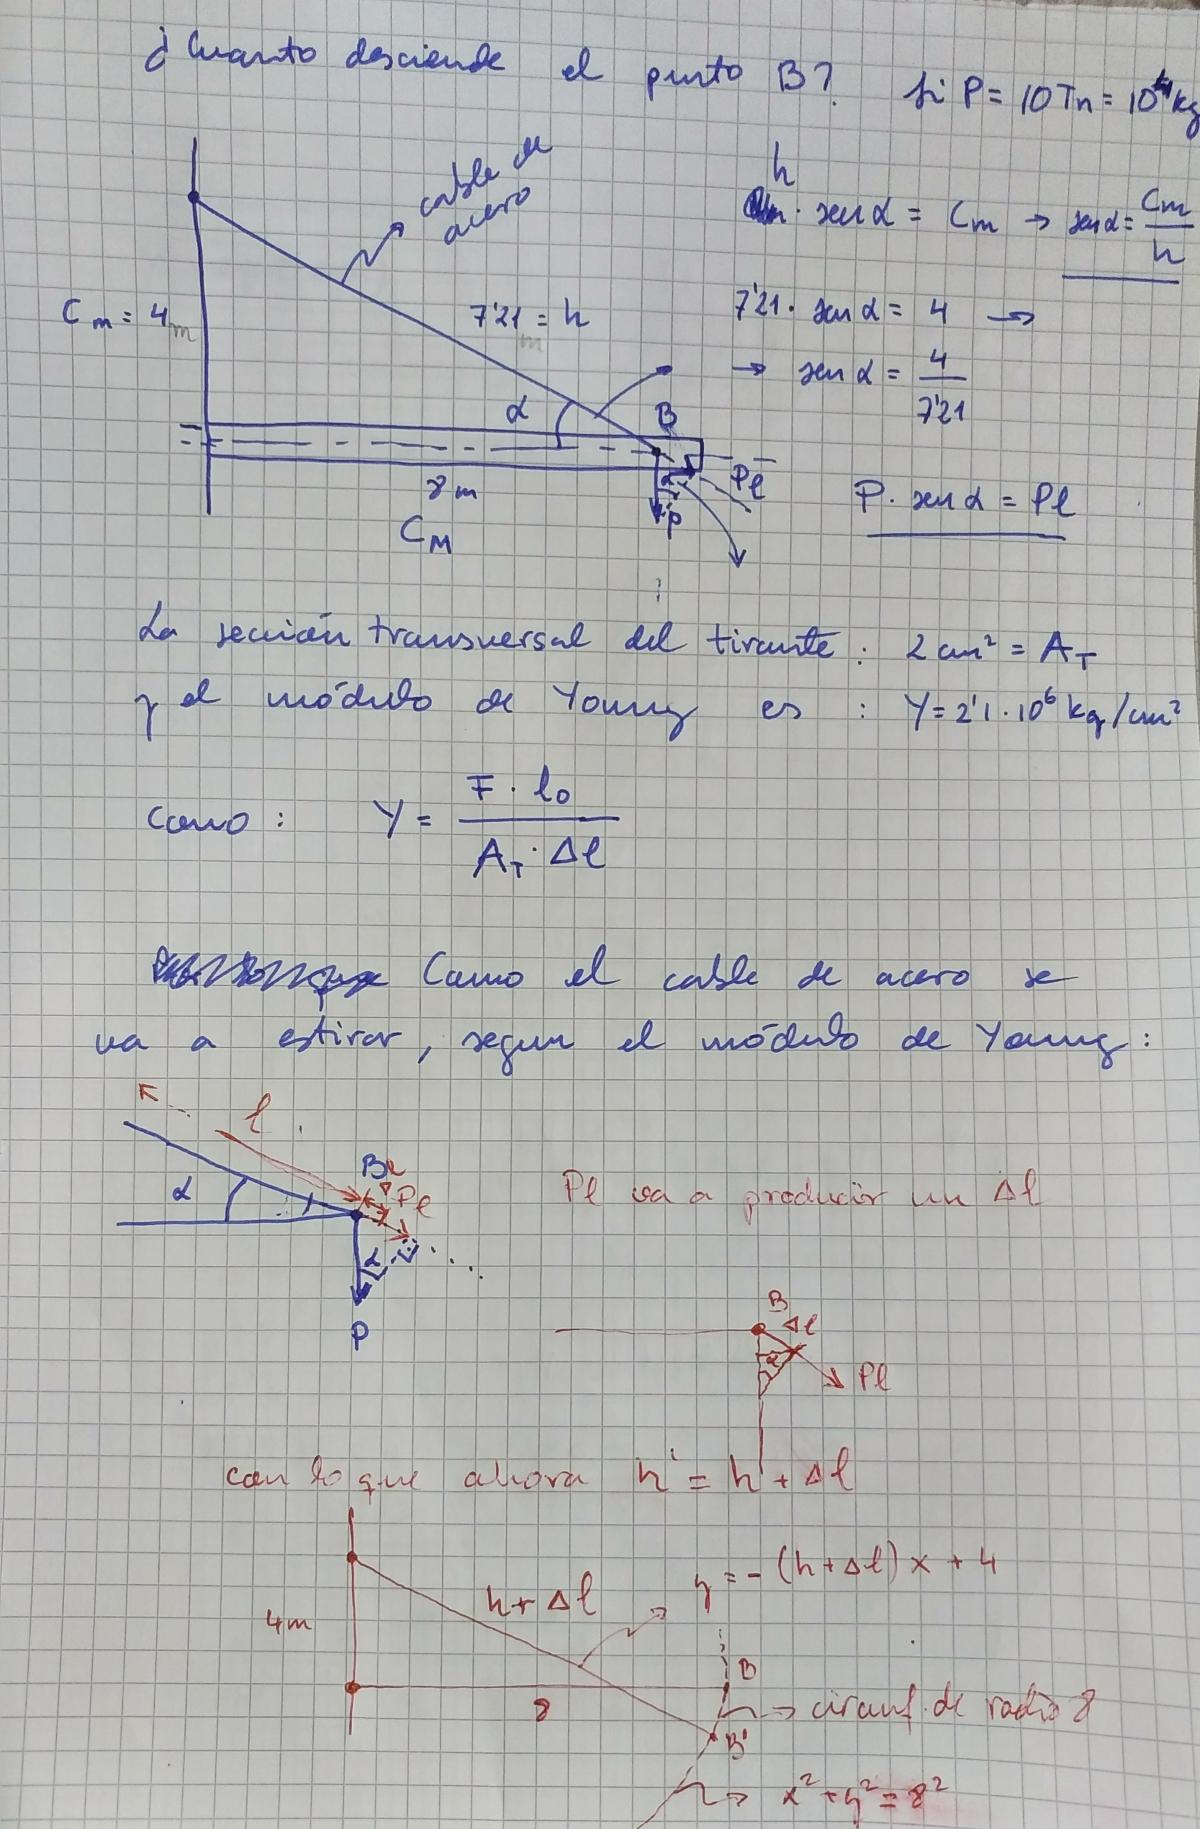 ¿Cuanto desciende el punto B? Si P = 10 Tn = 10⁴ kg
cable de
acero
h
· sen α = Cm → sen α = Cm / h
Cm = 4 m
7'21 = h
m
7'21 · sen α = 4 →
→ sen α = 4 / 7'21
α
B
8 m
α
Pl
P
P · sen α = Pl
CM
La sección transversal del tirante : 2 cm² = AT
y el módulo de Young es : Y = 2'1 · 10⁶ kg/cm²
Como : Y = F · l₀ / AT · Δl
Como el cable de acero se
va a estirar, segun el módulo de Young :
F
l
B
Δl
Pl
α
α
P
Pl va a producir un Δl
B
Δl
α
Pl
con lo que ahora h' = h + Δl
4m
h + Δl
y = -(h + Δl) x + 4
B
8
→ circunf. de radio 8
B'
→ x² + y² = 8²